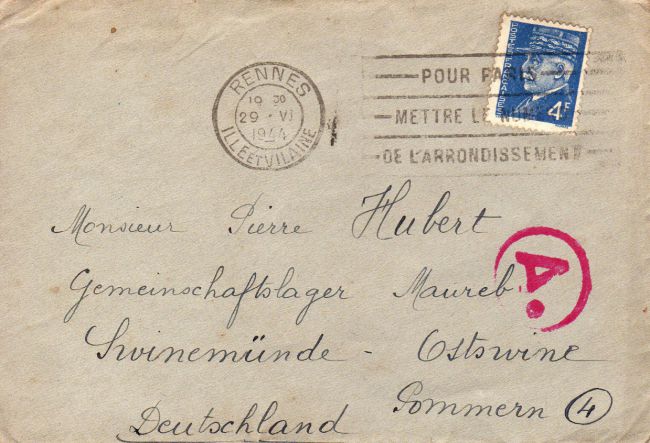 RENNES
19 30
29 · VI
1944
ILLE ET VILAINE
POUR PARIS
METTRE LE NUM
DE L'ARRONDISSEMENT
4F
Monsieur Pierre Hubert
Gemeinschaftslager Maureb.
Swinemünde - Ostswine
Pommern 4
Deutschland
A.